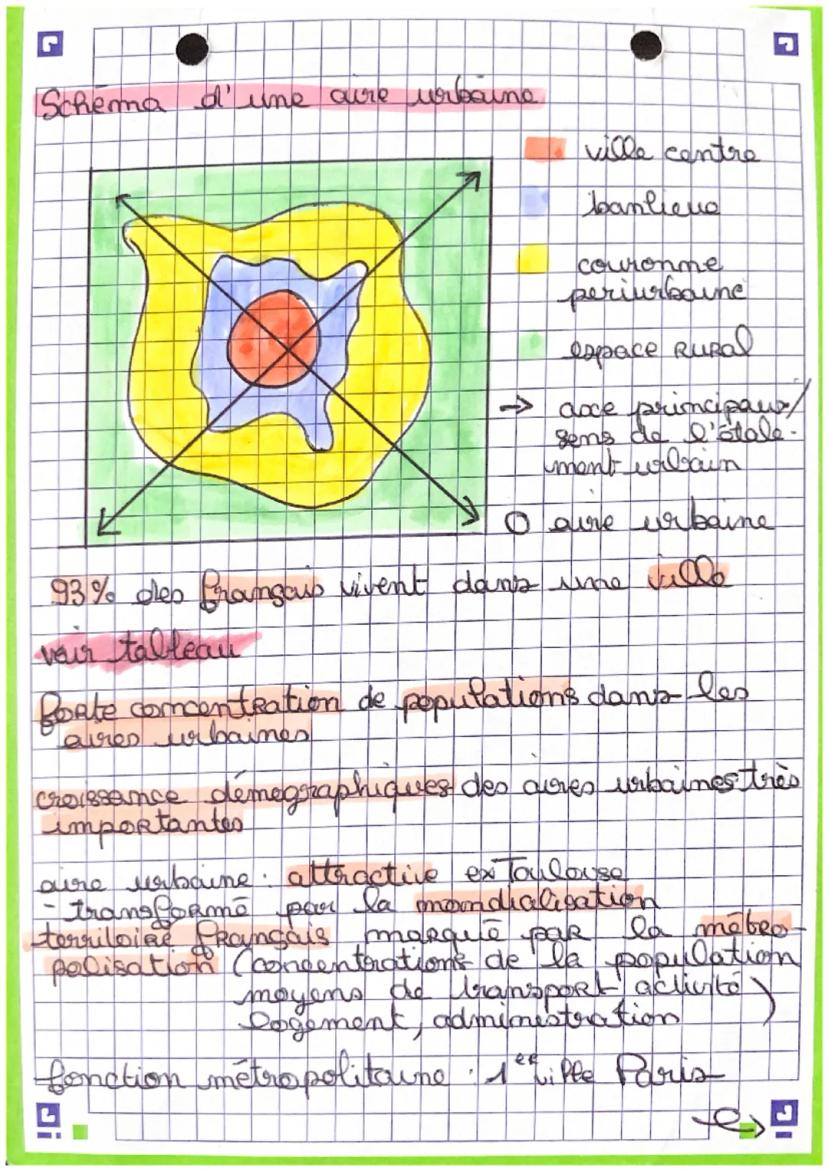 Schéma d'une aire urbaine
ville centre
banlieue
couronne
periurbaine
espace RURal
→ axe principaux/
sens de l'étale-
ment urbain
O aire urbaine
93% des français vivent dans une ville
voir tableau
forte concentration de populations dans les
aires urbaines
croissance démographiques des aires urbaines très
importantes
aire urbaine : attractive ex Toulouse
- transformé par la mondialisation
territoire français marqué par la métro-
polisation (concentrations de la population
moyens de transport activité
logement, administration)
fonction métropolitaine : 1ère ville Paris